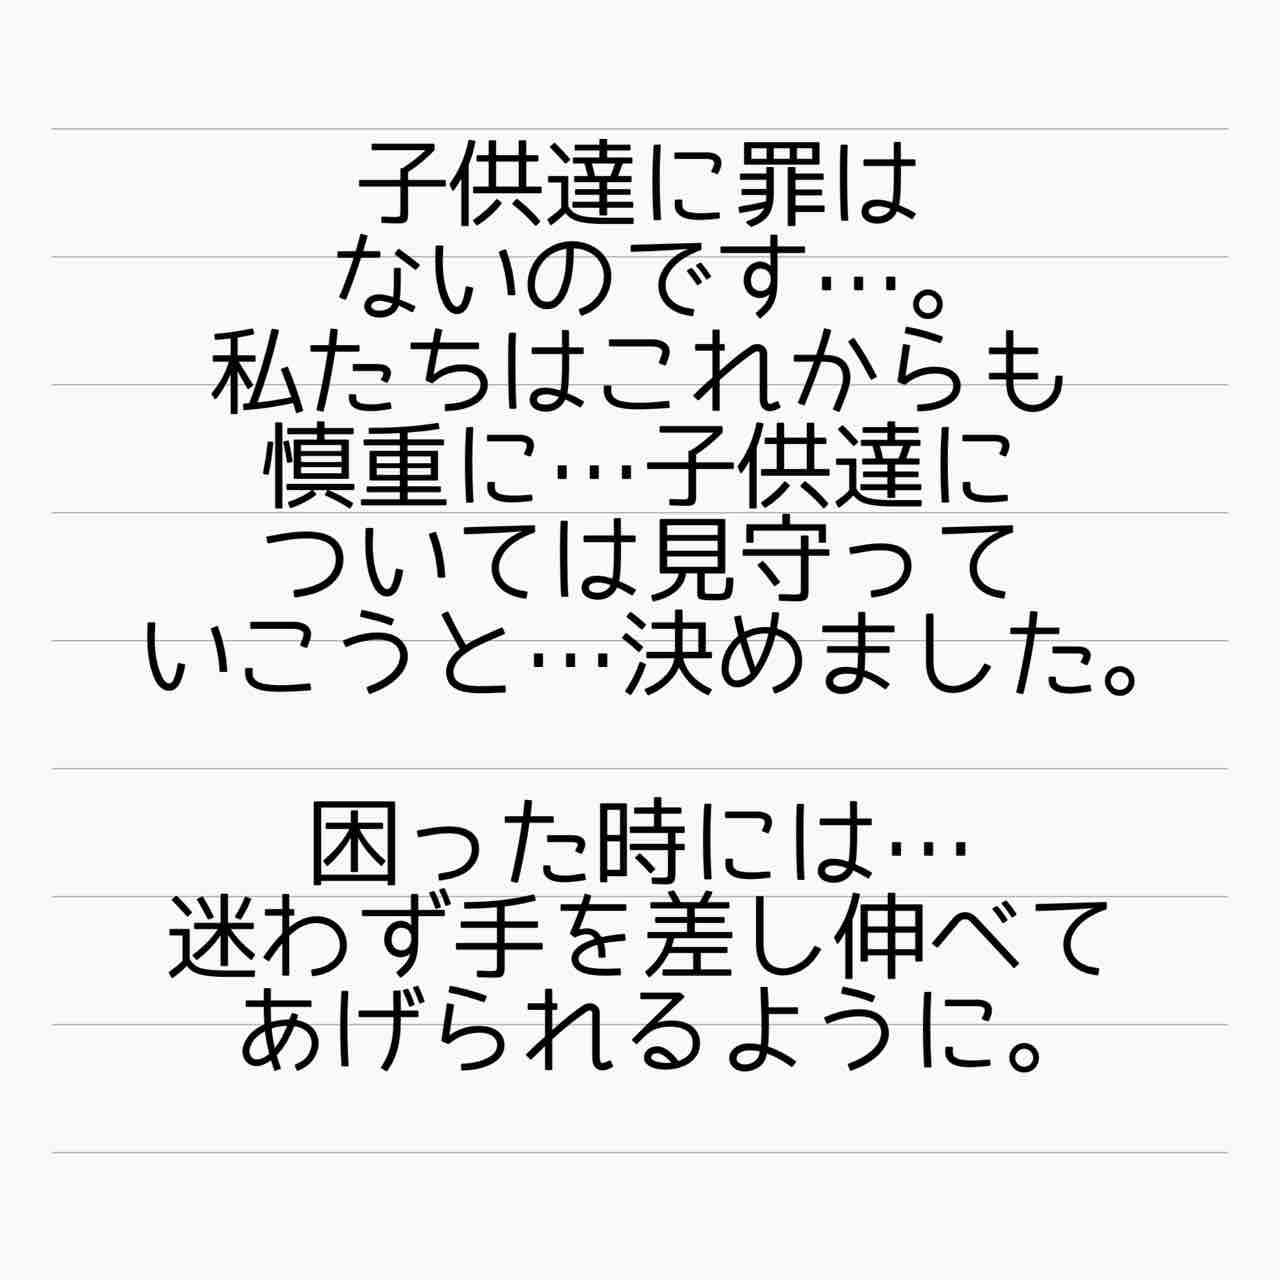 子供達に罪は
ないのです…。
私たちはこれからも
慎重に…子供達に
ついては見守って
いこうと…決めました。
困った時には…
迷わず手を差し伸べて
あげられるように。